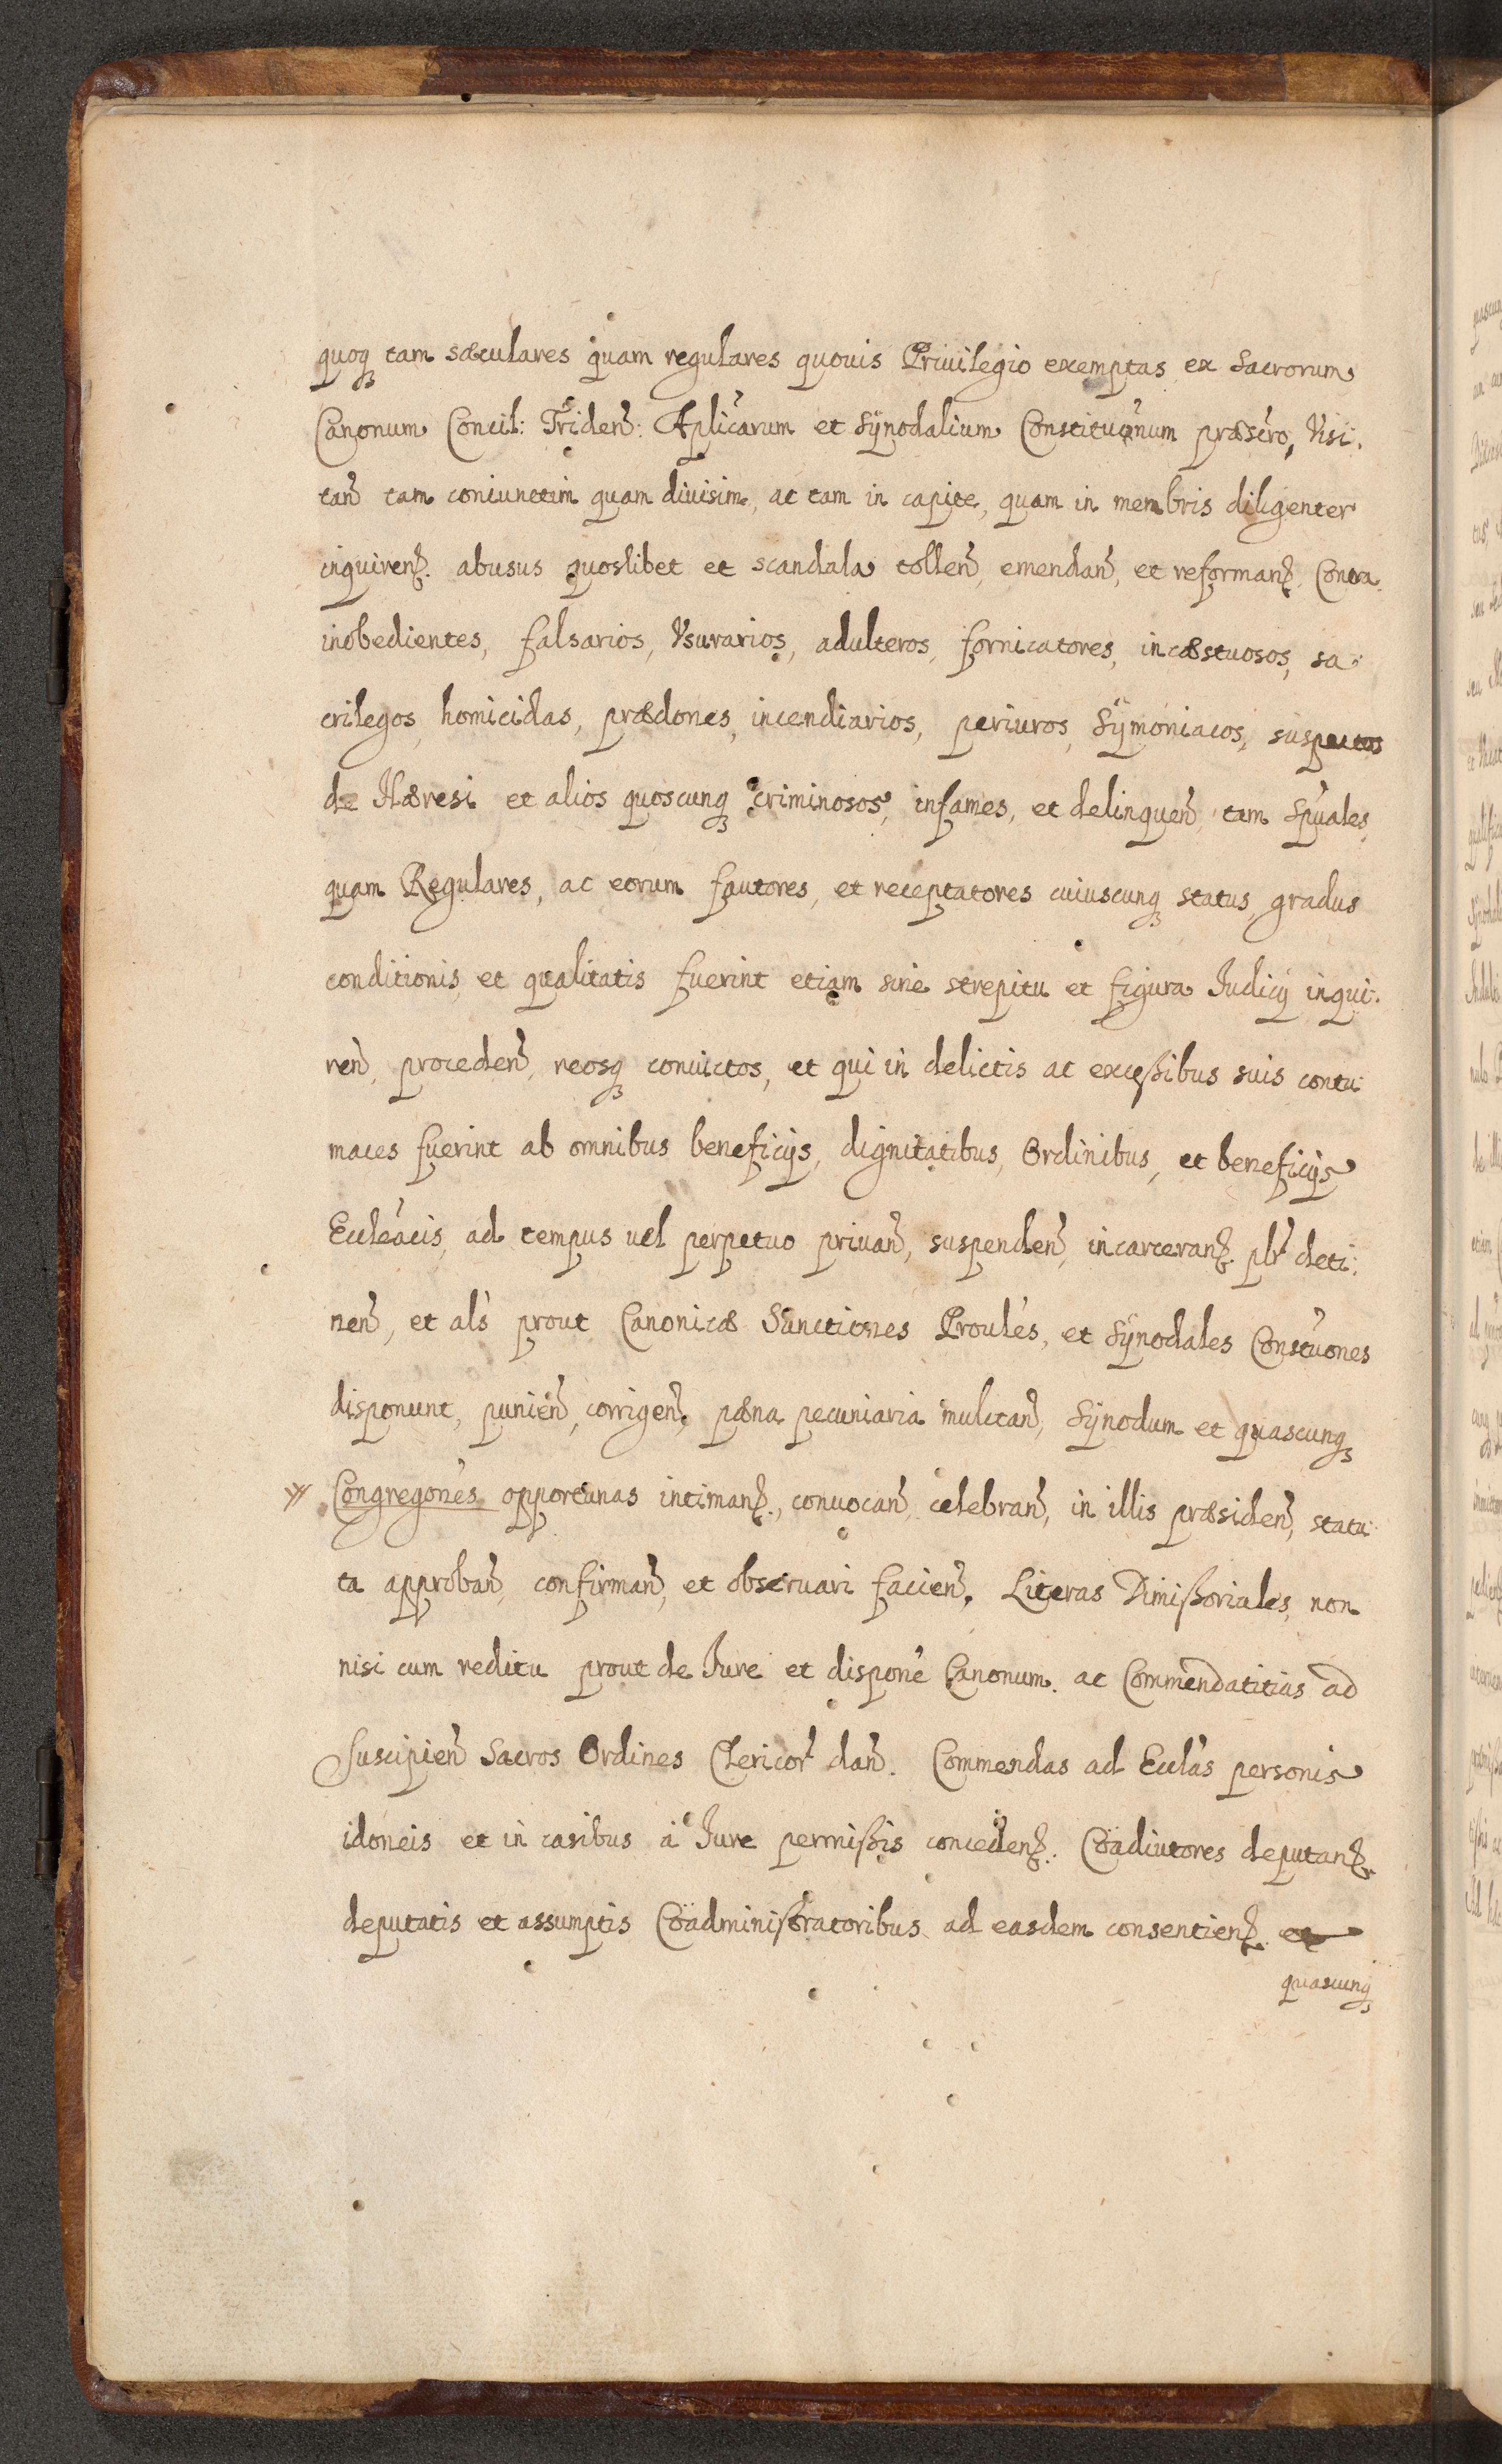 quoq; tam sæculares quam regulares quouis Priuilegio exemptas ex Sacrorum
Canonum Concil: Triden: Aplicarum et Sÿnodalium Constituonum præscro, Visi-
tan tam coniunctim quam diuisim, ac tam in capite, quam in membris diligenter
inquiren. abusus quoslibet et scandala tollen, emendan, et reforman. Contra
inobedientes, falsarios, Vsurarios, adulteros, fornicatores, incæstuosos, sa-
crilegos, homicidas, prædones, incendiarios, periuros, Sÿmoniacos, suspectos
de Hæresi et alios quoscunq; criminosos, infames, et delinquen, tam Spuales
quam Regulares, ac eorum fautores, et receptatores cuiuscunq; status, gradus
conditionis, et qualitatis fuerint etiam sine strepitu et figura Iudicÿ inqui-
ren, proceden, reosq; conuictos, et qui in delictis ac excessibus suis contu-
maces fuerint ab omnibus beneficÿs, dignitatibus, Ordinibus, et beneficÿs
Eccleacis, ad tempus uel perpetuo priuan, suspenden, incarceran. plr deti-
nen, et als prout Canonicæ Sanctiones Proules, et Sÿnodales Constuones
disponunt, punien, corrigen, pæna pecuniaria mulctan, Sÿnodum et quascunq;
Congregones opportunas intiman., conuocan, celebran, in illis præsiden, statu-
ta approban, confirman, et obseruari facien. Literas Dimissoriales, non
nisi cum reditu prout de Iure et dispone Canonum. ac Commendatitias ad
suscipien Sacros Ordines Clericor dan. Commendas ad Ecclas personis
idoneis et in casibus à Iure permissis conceden. Coadiutores deputan.
deputatis et assumptis Coadministratoribus ad easdem consentien. et
quascunq;